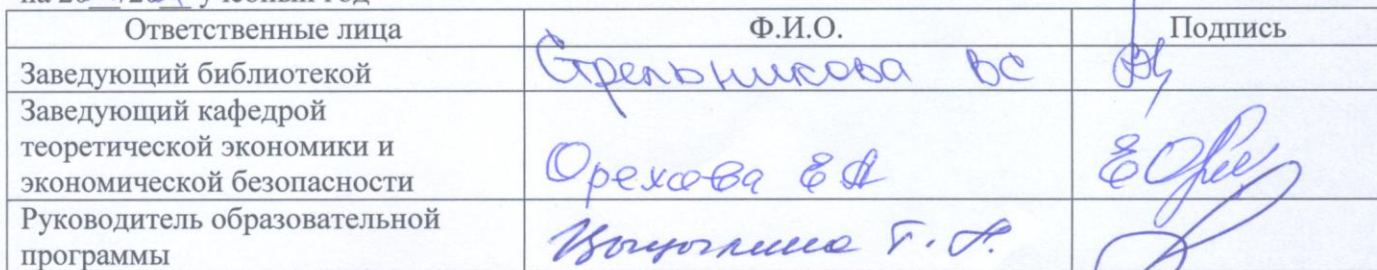 учебный год
Ответственные лица Ф.И.О. Подпись
Заведующий библиотекой Стрельникова ВС
Заведующий кафедрой
теоретической экономики и
экономической безопасности Орехова ЕА
Руководитель образовательной
программы Т. Н.